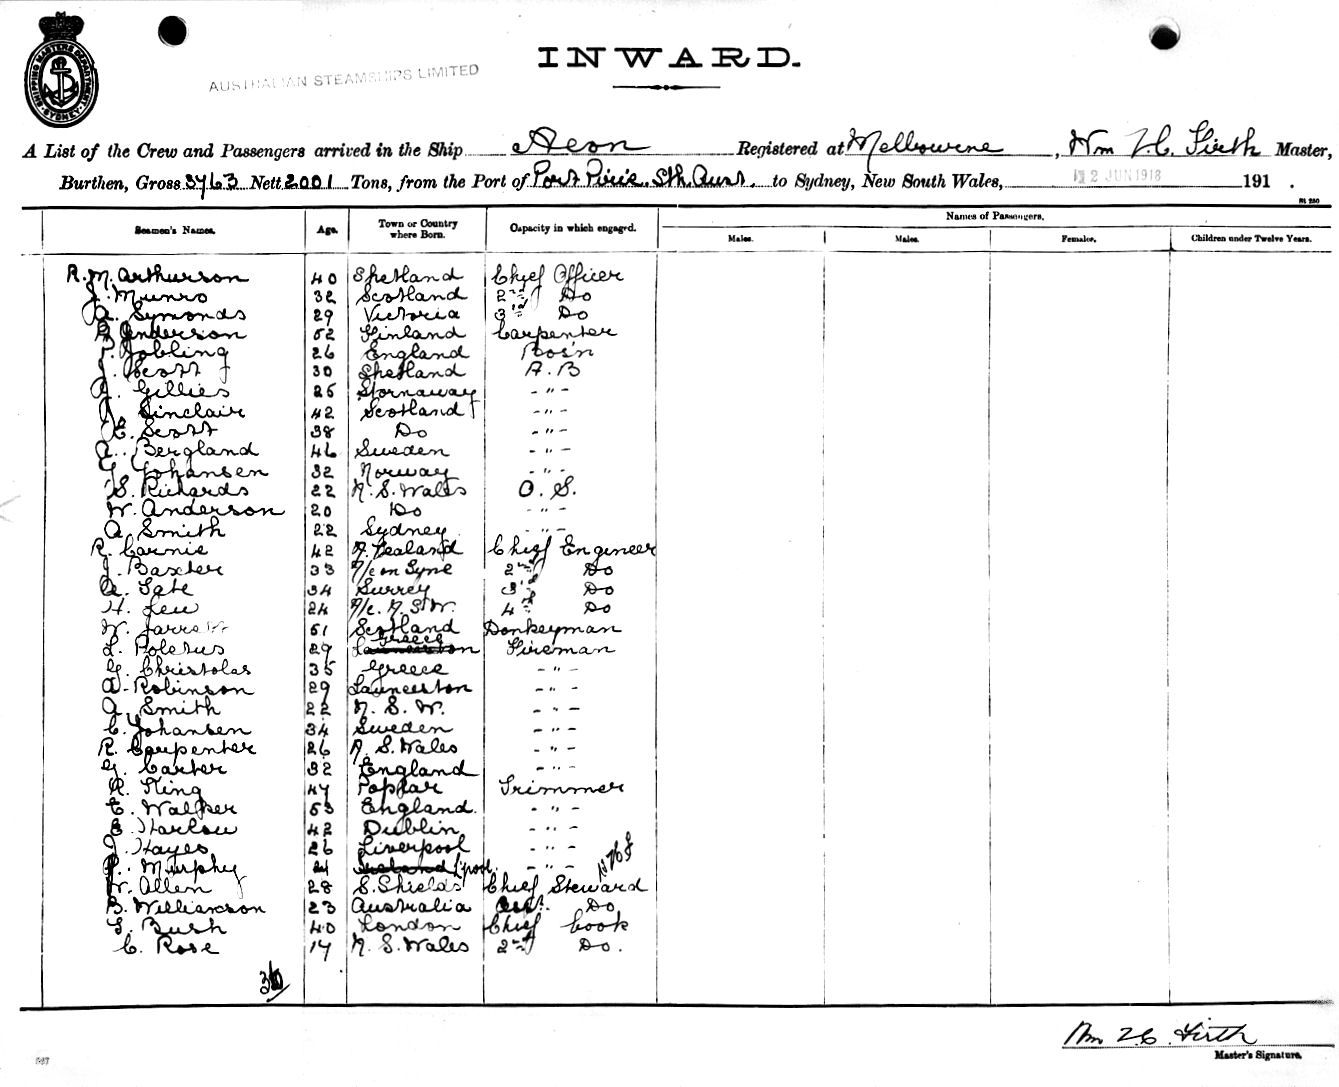 SHIPPING MASTERS DEPARTMENT SYDNEY
INWARD.
AUSTRALIAN STEAMSHIPS LIMITED
A List of the Crew and Passengers arrived in the Ship Aeon Registered at Melbourne, Wm H.C. Firth Master,
Burthen, Gross 3763 Nett 2001 Tons, from the Port of Port Pirie Sth. Aust. to Sydney, New South Wales, 12 JUN 1918 191 .
Seamen's Names. Age. Town or Country where Born. Capacity in which engaged. Names of Passengers.
Males. Males. Females. Children under Twelve Years.
R. M. Arthurson 40 Shetland Chief Officer
J. Munro 32 Scotland 2nd Do
A. Symonds 29 Victoria 3rd Do
Anderson 52 Finland Carpenter
Jobling 26 England Bos'n
J. Scott 30 Shetland A. B
A. Gillies 25 Stornaway - " -
Sinclair 42 Scotland - " -
E. Scott 38 Do - " -
A. Bergland 46 Sweden - " -
Johansen 32 Norway - " -
S. Richards 22 N. S. Wales O. S.
W. Anderson 20 Do - " -
A. Smith 22 Sydney - " -
R. Carnie 42 N. Zealand Chief Engineer
J. Baxter 33 N/c on Tyne 2nd Do
A. Tate 34 Surrey 3rd Do
H. Lew 24 N/c. N. S. W. 4th Do
W. Jarrett 51 Scotland Donkeyman
L. Poletus 29 Launceston Greece Fireman
G. Christolas 35 Greece - " -
A. Robinson 29 Launceston - " -
A. Smith 22 N. S. W. - " -
C. Johansen 34 Sweden - " -
R. Carpenter 26 N. S. Wales - " -
G. Carter 32 England - " -
R. King 47 Poplar Trimmer
E. Walker 53 England - " -
E. Harlow 42 Dublin - " -
J. Hayes 26 Liverpool - " -
P. Murphy 21 Ireland L'pool. - " -
W. Allen 28 S. Shields Chief Steward
B. Williamson 23 Australia Asst. Do
Bush 40 London Chief Cook
C. Rose 17 N. S. Wales 2nd Do.
36
Wm H.C. Firth
Master's Signature.